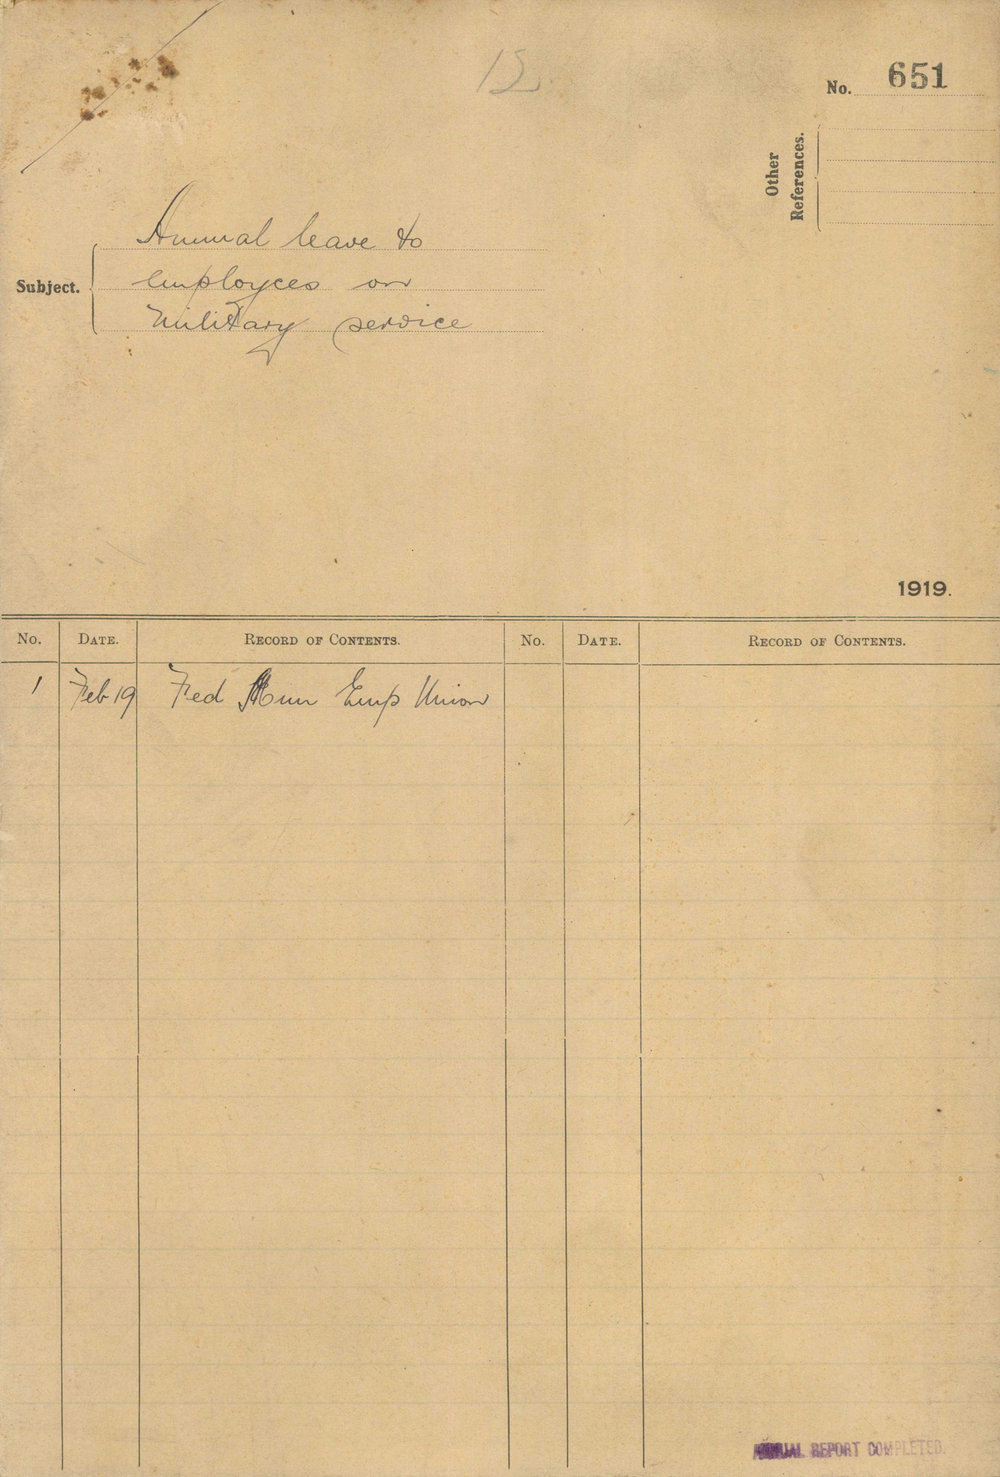 12
No. 651
Other
References.
Subject.
Annual leave to
employees on
military service
1919.
No. DATE. RECORD OF CONTENTS. No. DATE. RECORD OF CONTENTS.
1 Feb 19 Fed Mun Emp Union
ANNUAL REPORT COMPLETED.